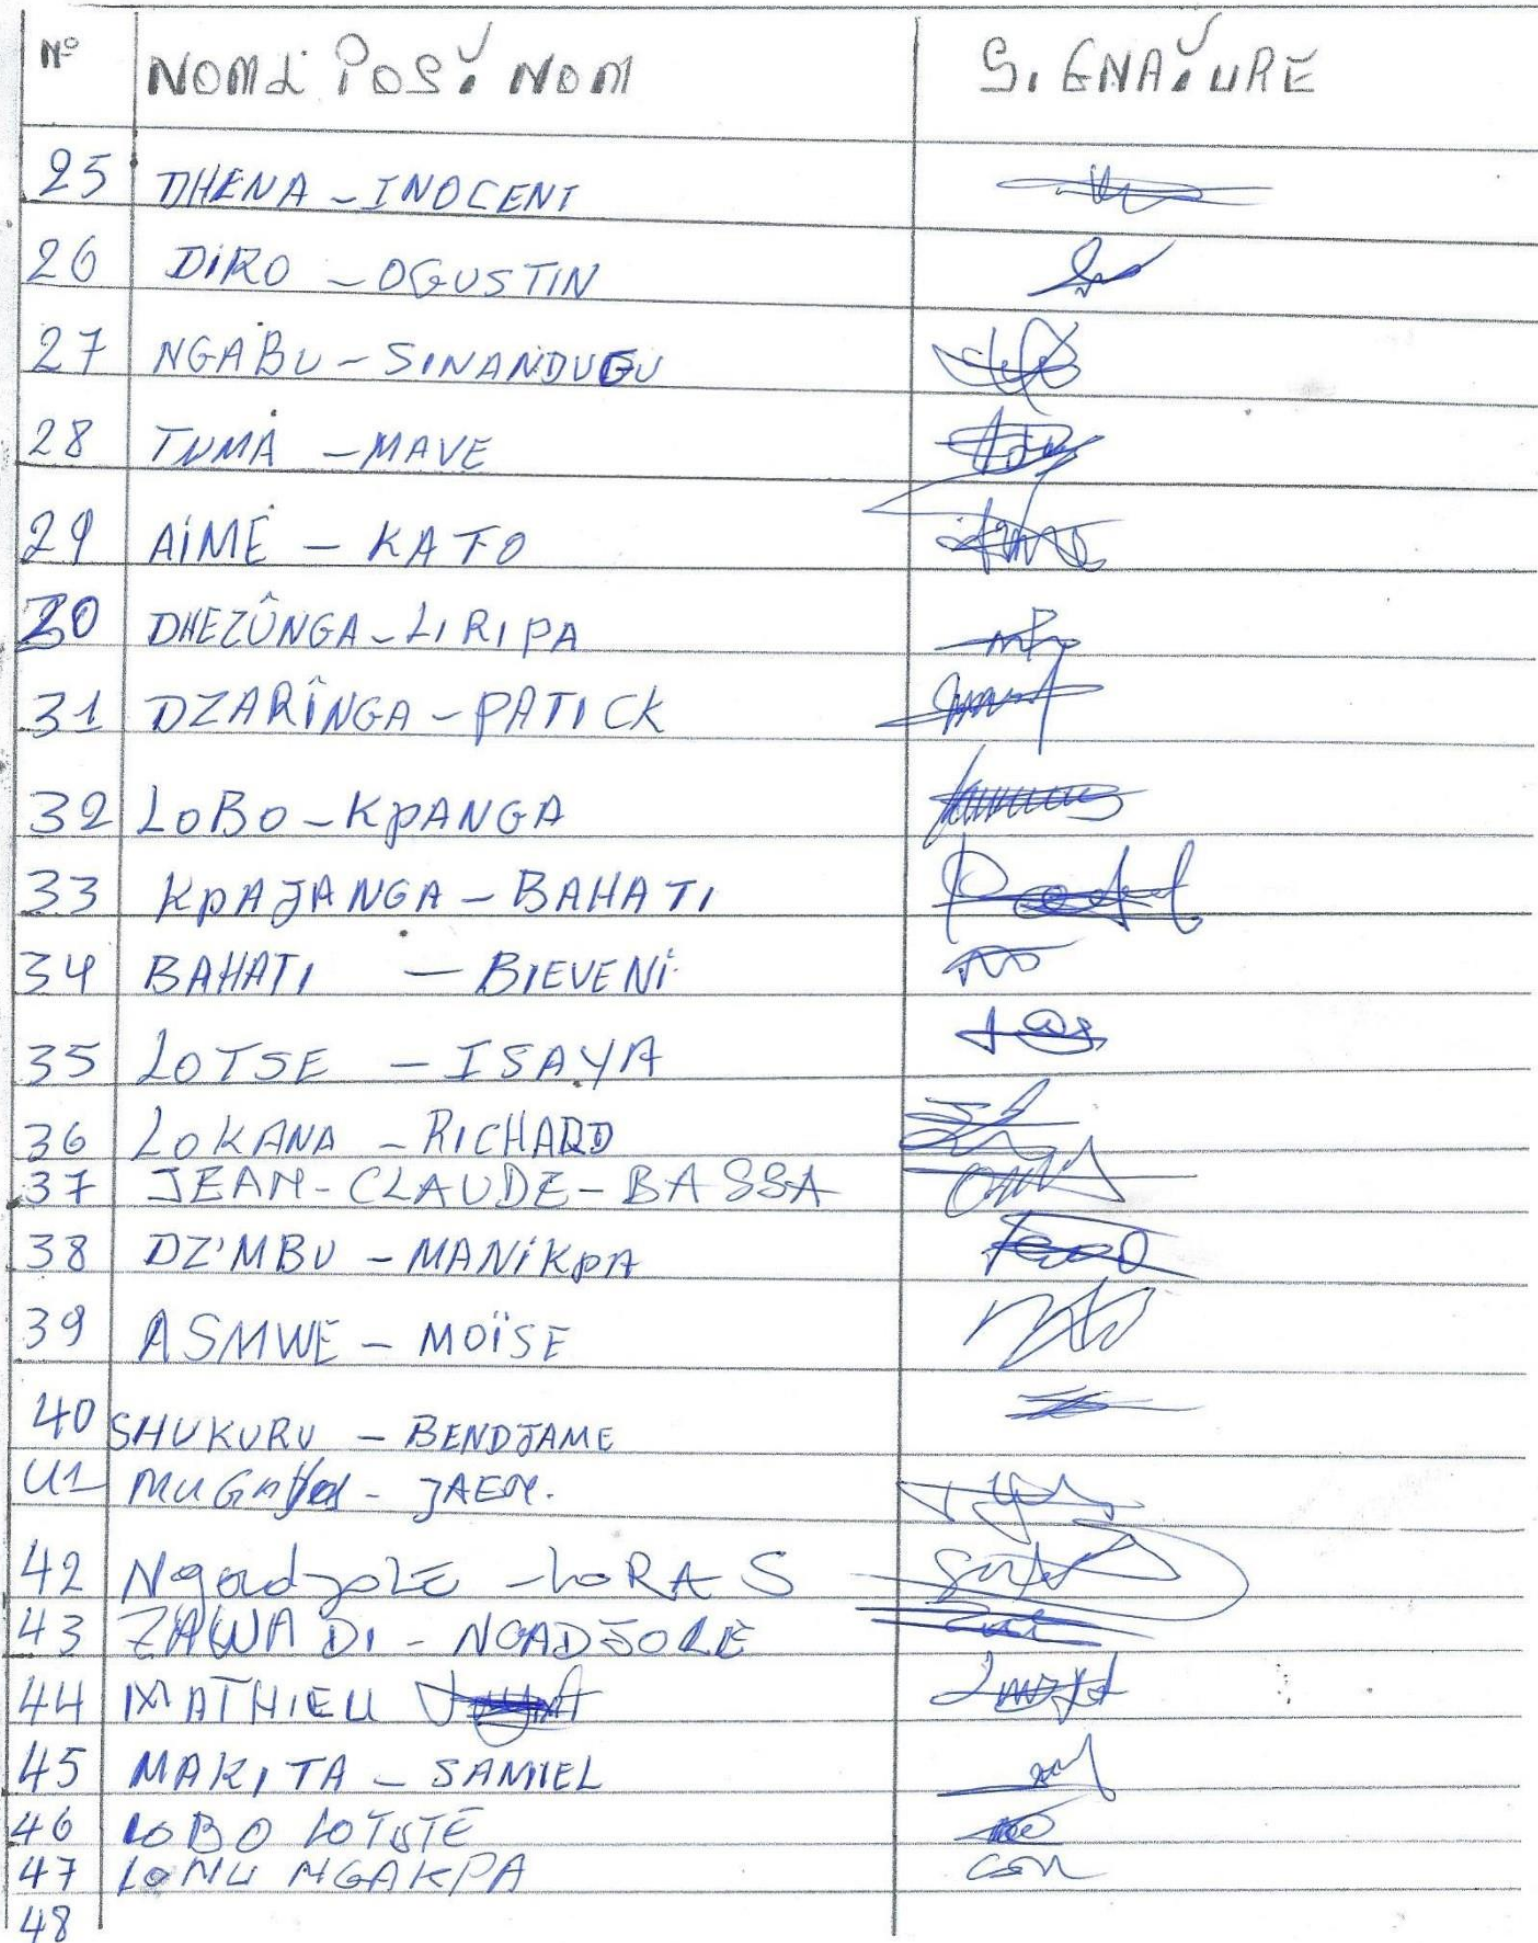 N° NOM & POST NOM SIGNATURE
25 DHENA - INOCENT
26 DIRO - OGUSTIN
27 NGABU - SINANDUGU
28 TUMA - MAVE
29 AIMÉ - KATO
30 DHEZÛNGA - LIRIPA
31 DZARÎNGA - PATICK
32 LOBO - KPANGA
33 KPAJANGA - BAHATI
34 BAHATI - BIEVENI
35 LOTSE - ISAYA
36 LOKANA - RICHARD
37 JEAN - CLAUDE - BASSA
38 DZ'MBU - MANIKPA
39 ASMWE - MOÏSE
40 SHUKURU - BENDJAME
41 JAEM.
42 Ngadjole - LORAS
43 ZAWADI - NGADJOLE
44 MATHIEU
45 MAKITA - SAMUEL
46 LOBO LOTSTE
47 LONU NGAKPA
48